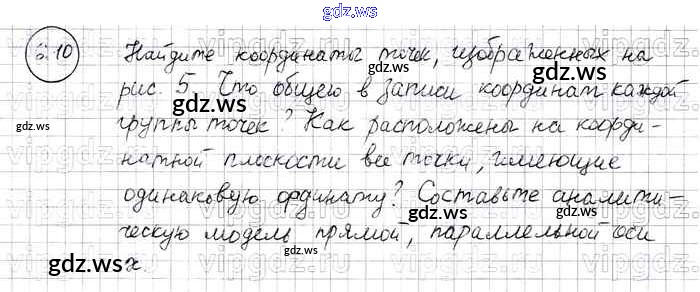 gdz.ws
6.10 Найдите координаты точек, изображенных на
рис. 5. Что общего в записи координат каждой
группы точек? Как расположены на коорди-
натной плоскости все точки, имеющие
одинаковую ординату? Составьте аналити-
ческую модель прямой, параллельной оси
x.
gdz.ws
gdz.ws
gdz.ws
gdz.ws
gdz.ws
gdz.ws
gdz.ws
gdz.ws
gdz.ws
vipgdz.ws
vipgdz.ws
vipgdz.ws